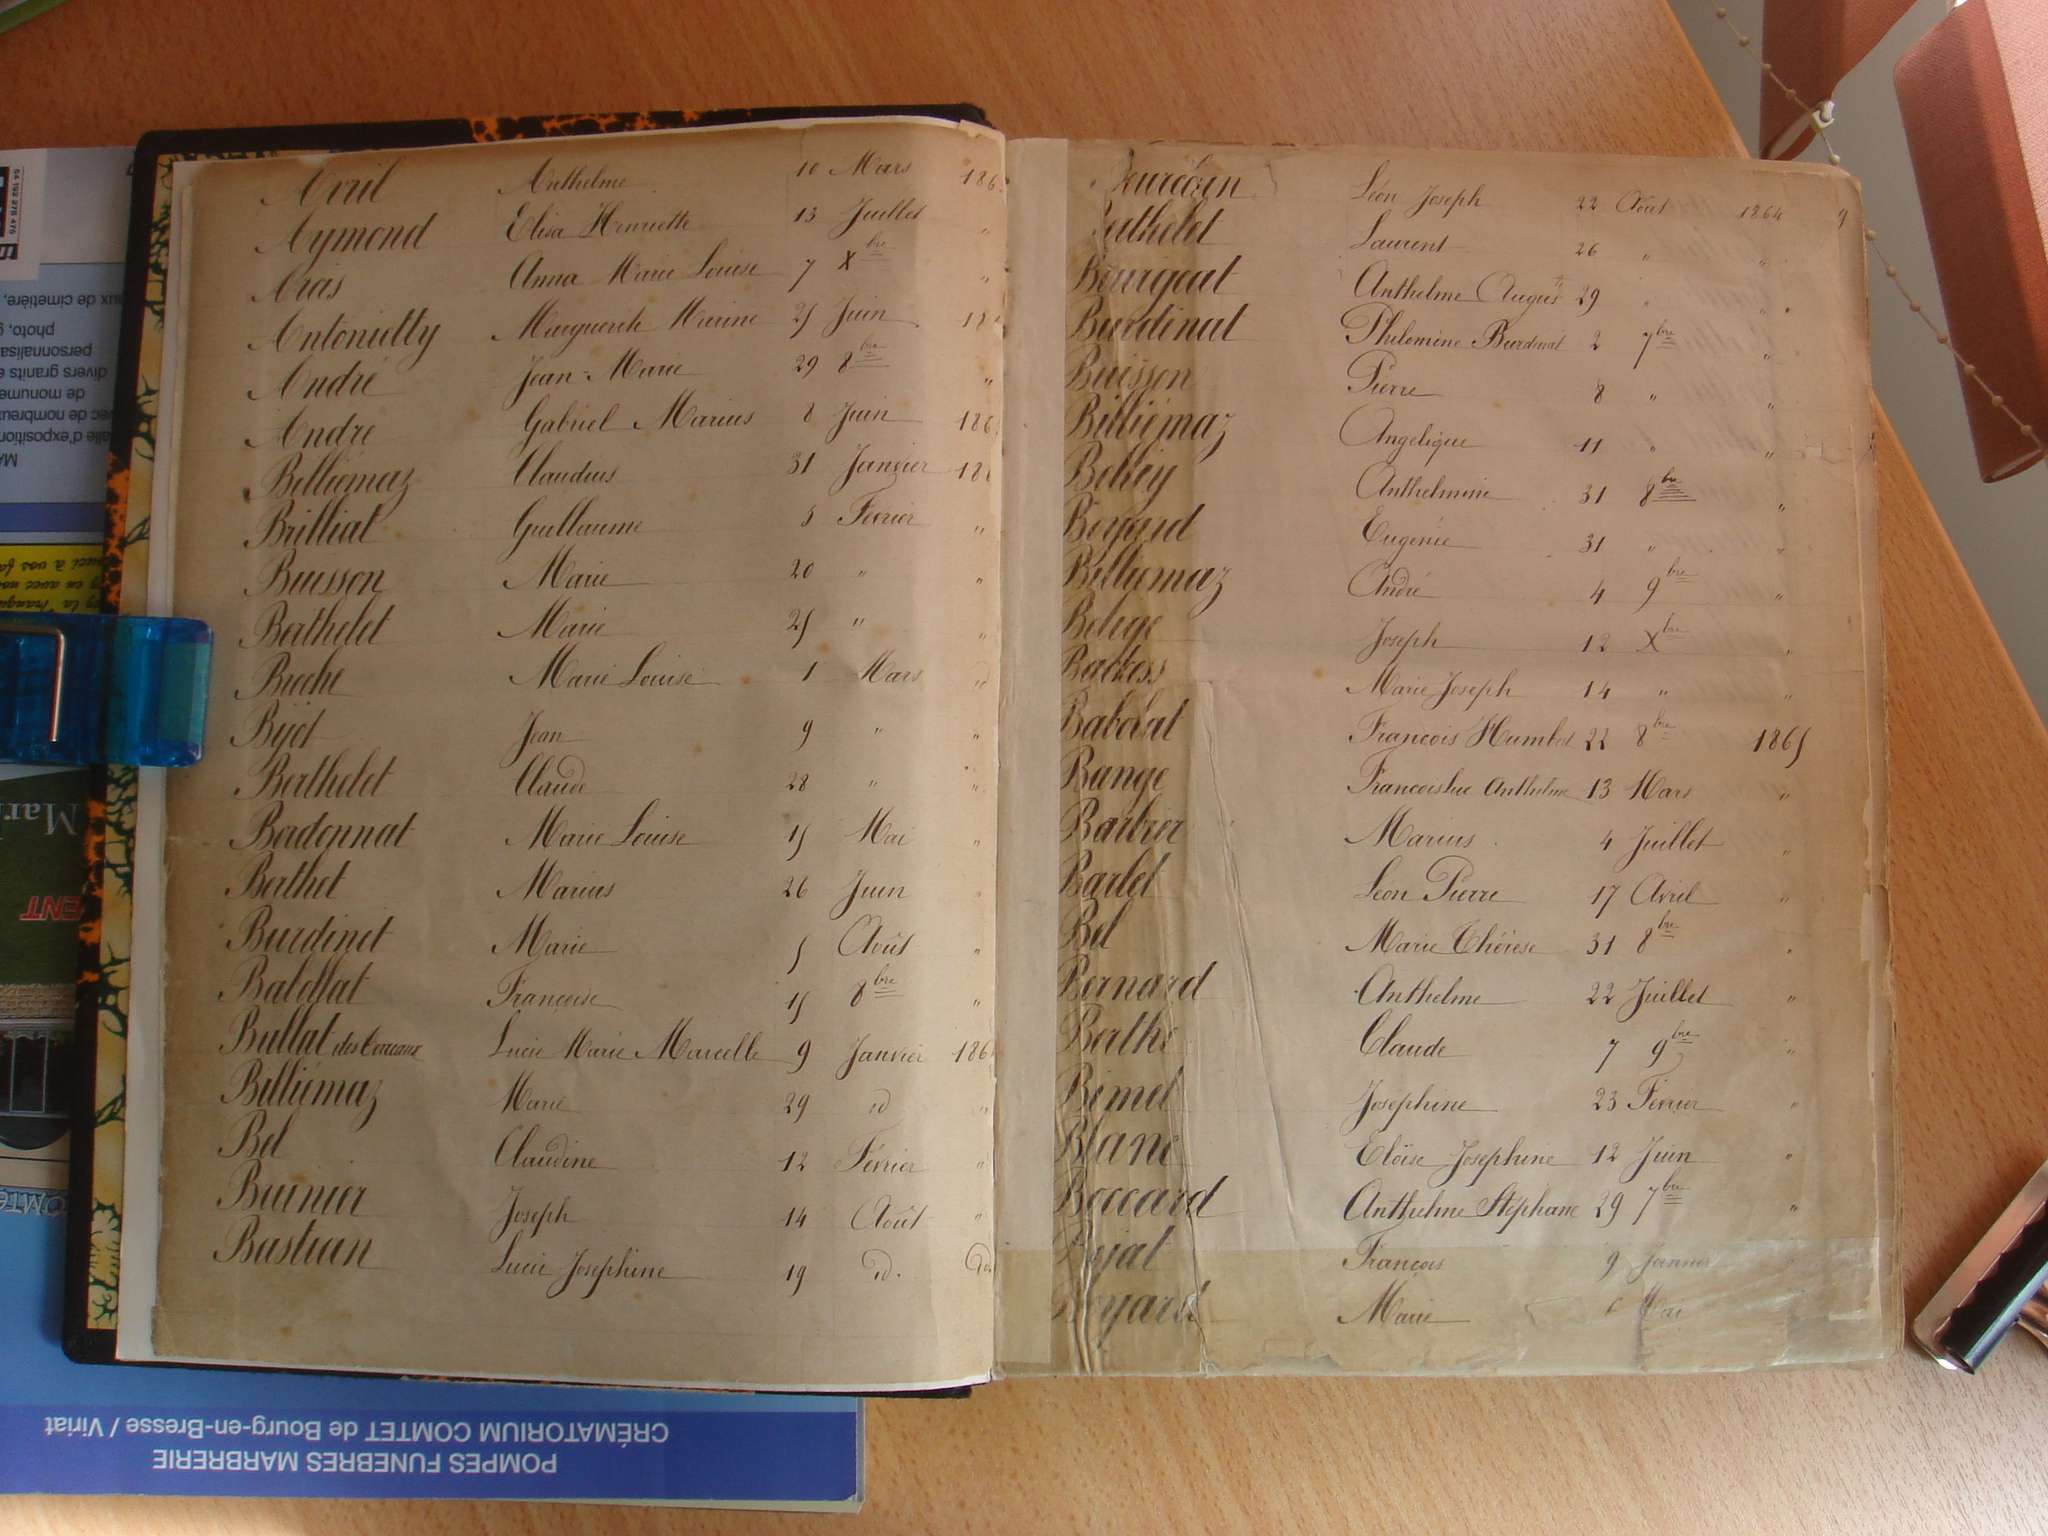 Avril Anthelme 10 Mars 186
Aymond Elisa Henriette 13 Juillet "
Aras Anna Marie Louise 7 Xbre "
Antonietty Marguerite Marine 25 Juin 18
André Jean-Marie 29 8bre "
André Gabriel Marius 8 Juin 186
Billiémaz Claudius 31 Janvier 18
Brilliat Guillaume 5 Février "
Buisson Marie 20 " "
Berthelet Marie 25 " "
Marie Louise 1 Mars d
Bijot Jean 9 " "
Berthelet Claude 28 " "
Badonnat Marie Louise 15 Mai "
Berthet Marius 26 Juin "
Burdinet Marie 5 Août "
Balollat Françoise 15 8bre "
Bullat Lucie Marie Marcelle 9 Janvier 186
Billiémaz Marie 29 id "
Bel Claudine 12 Février "
Buinier Joseph 14 Août "
Bastian Lucie Joséphine 19 id. do
Léon Joseph 22 Août 1864 9
Berthelet Laurent 26 " "
Bourgeat Anthelme Augus 29 " "
Burdinat Philomène Burdinat 2 7bre "
Buisson Pierre 8 " "
Billiémaz Angelique 11 " "
Belley Anthelmine 31 8bre "
Boyard Eugénie 31 " "
Billiemaz André 4 9bre "
Joseph 12 Xbre "
Marie Joseph 14 " "
Babolat François Humbert 22 8bre 1865
Bange Anthelme 13 Mars "
Barbier Marius 4 Juillet "
Barlet Léon Pierre 17 Avril "
Bel Marie Thérèse 31 8bre "
Bernard Anthelme 22 Juillet "
Berthe Claude 7 9bre "
Bimet Joséphine 23 Février "
Blanc Eloïse Joséphine 12 Juin "
Boccard Anthelme Stéphane 29 7bre "
Bujat François 9 Janvier "
Boyard Marie Mai
54 192 278 475
aux de cimetière,
photo,
divers granits
vec de nombreux
alle d'exposition
POMPES FUNEBRES MARBRERIE
CRÉMATORIUM COMTET de Bourg-en-Bresse / Viriat